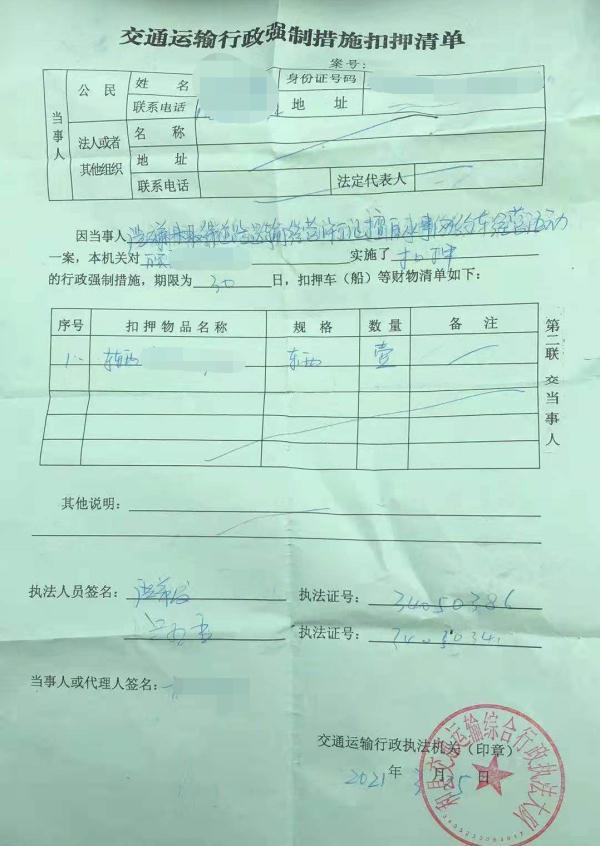 交通运输行政强制措施扣押清单
案号：
当事人
公民
姓名
身份证号码
联系电话
地址
法人或者其他组织
名称
地址
联系电话
法定代表人
因当事人涉嫌未取得道路运输经营许可证擅自从事网约车经营活动
一案，本机关对 实施了 扣押
的行政强制措施，期限为 30 日，扣押车（船）等财物清单如下：
序号 扣押物品名称 规格 数量 备注
1 壹
第二联 交当事人
其他说明：
执法人员签名： 执法证号： 34050386
执法证号：
当事人或代理人签名：
交通运输行政执法机关（印章）
2021年 3月 25日
和县交通运输综合行政执法大队